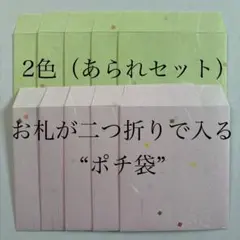 2色（あられセット）
お札が二つ折りで入る
“ポチ袋”